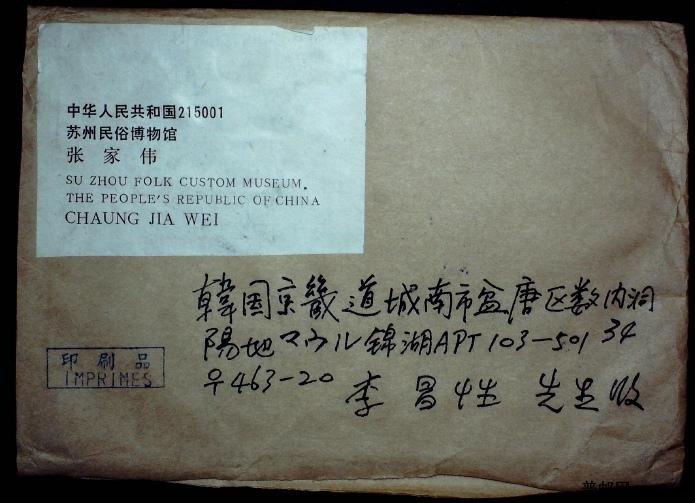 中华人民共和国215001
苏州民俗博物馆
张家伟
SU ZHOU FOLK CUSTOM MUSEUM.
THE PEOPLE'S REPUBLIC OF CHINA
CHAUNG JIA WEI
韓国京畿道城南市盆唐区数内洞
陽地マウル錦湖APT 103-501 34
〒463-20
李昌性 先生收
印刷品
IMPRIMES